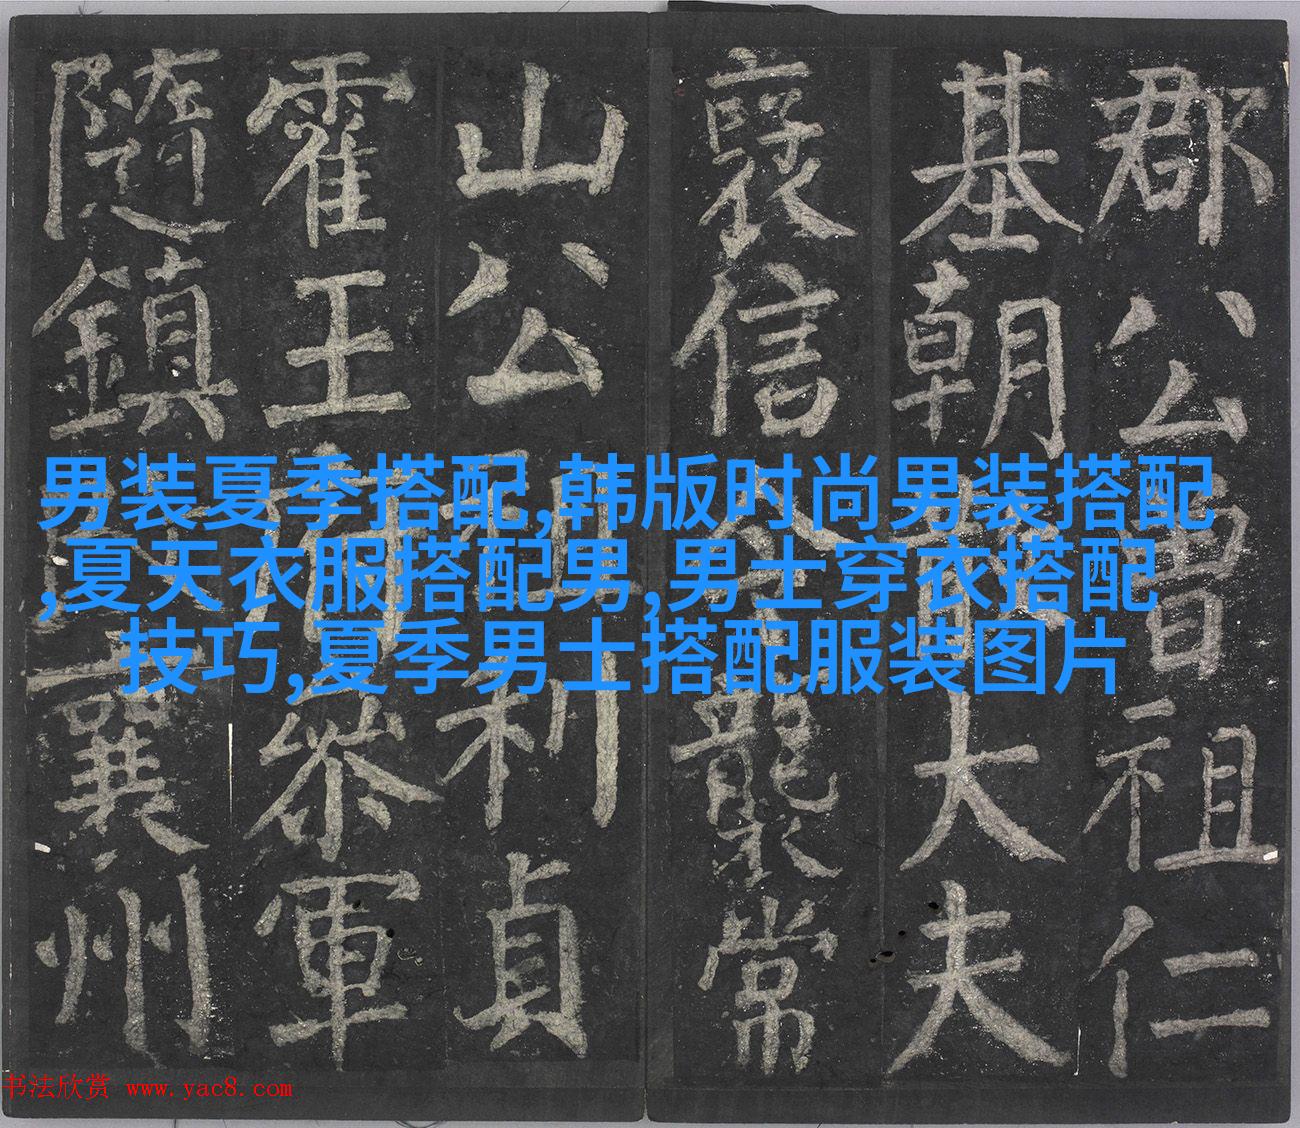 郡公曾祖仁
基朝散大夫
襃信令襲常
山公祖利貞
霍王府參軍
隨鎮襄州
男装夏季搭配,韩版时尚男装搭配
,夏天衣服搭配男,男士穿衣搭配
技巧,夏季男士搭配服装图片
书法欣赏 www.yac8.com